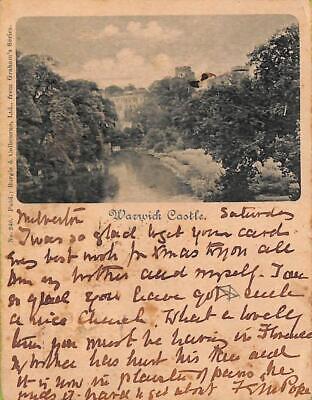 No. 245. Publ: Burgis & Colbourne, Ltd., from Graham's Series.
Warwick Castle.
Milverton Saturday
I was so glad to get your card
best wish for Xmas to you all
from my brother and myself. I am
so glad you have got such
a nice church. What a lovely
time you must be having in Florence
My brother has hurt his knee and
it is now in plaster of paris, he
finds it hard to get about